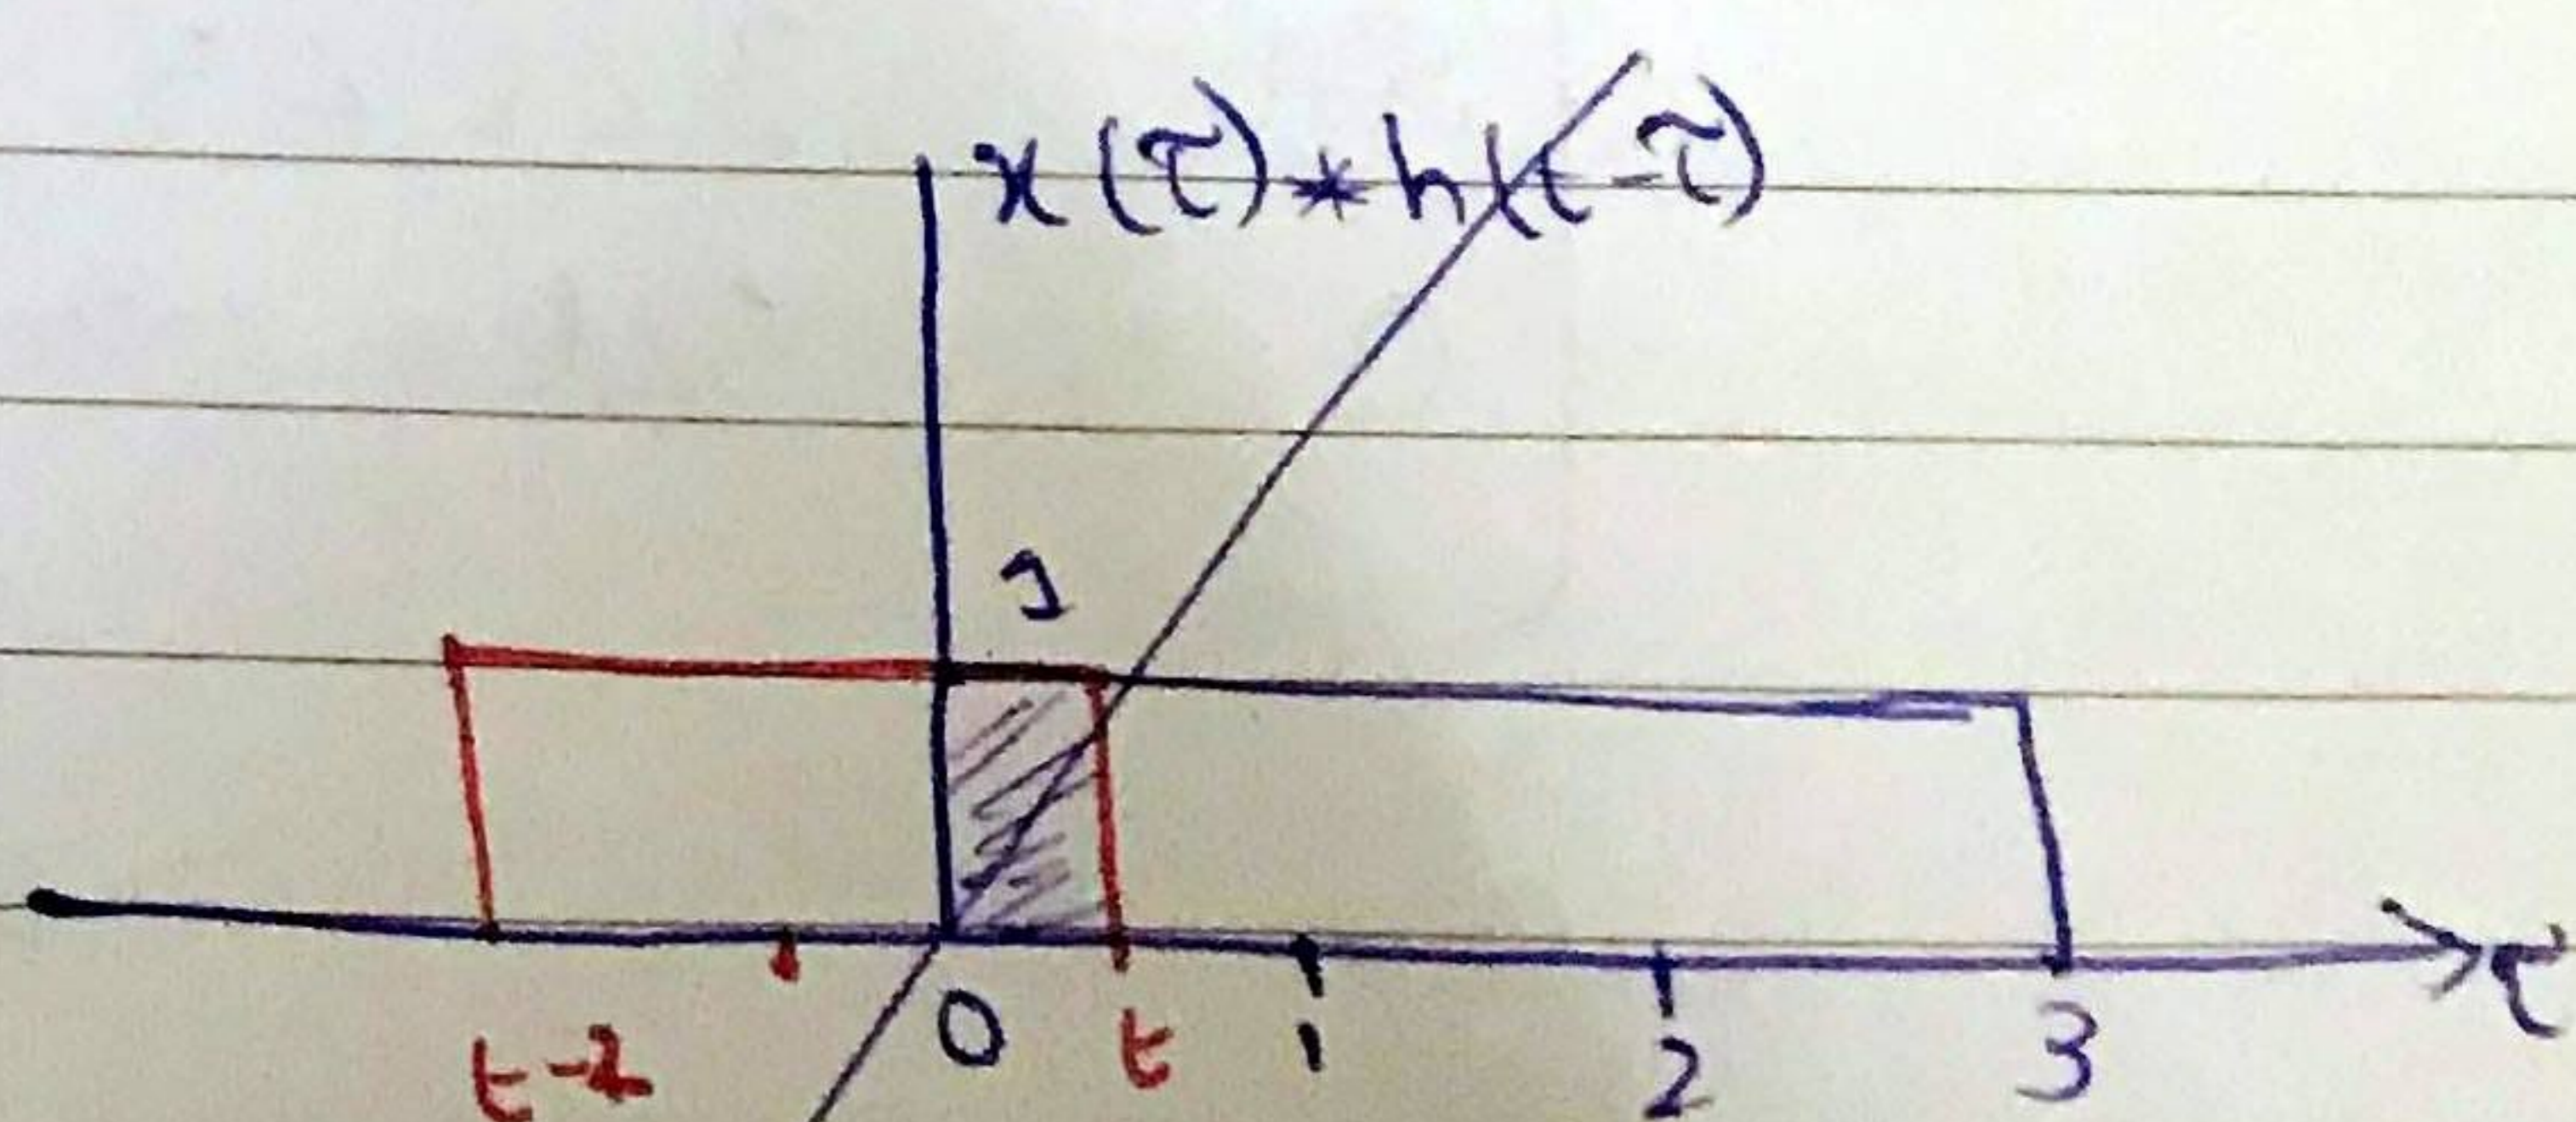 x(τ) * h(t-τ)
1
τ
t-2 0 t 1 2 3